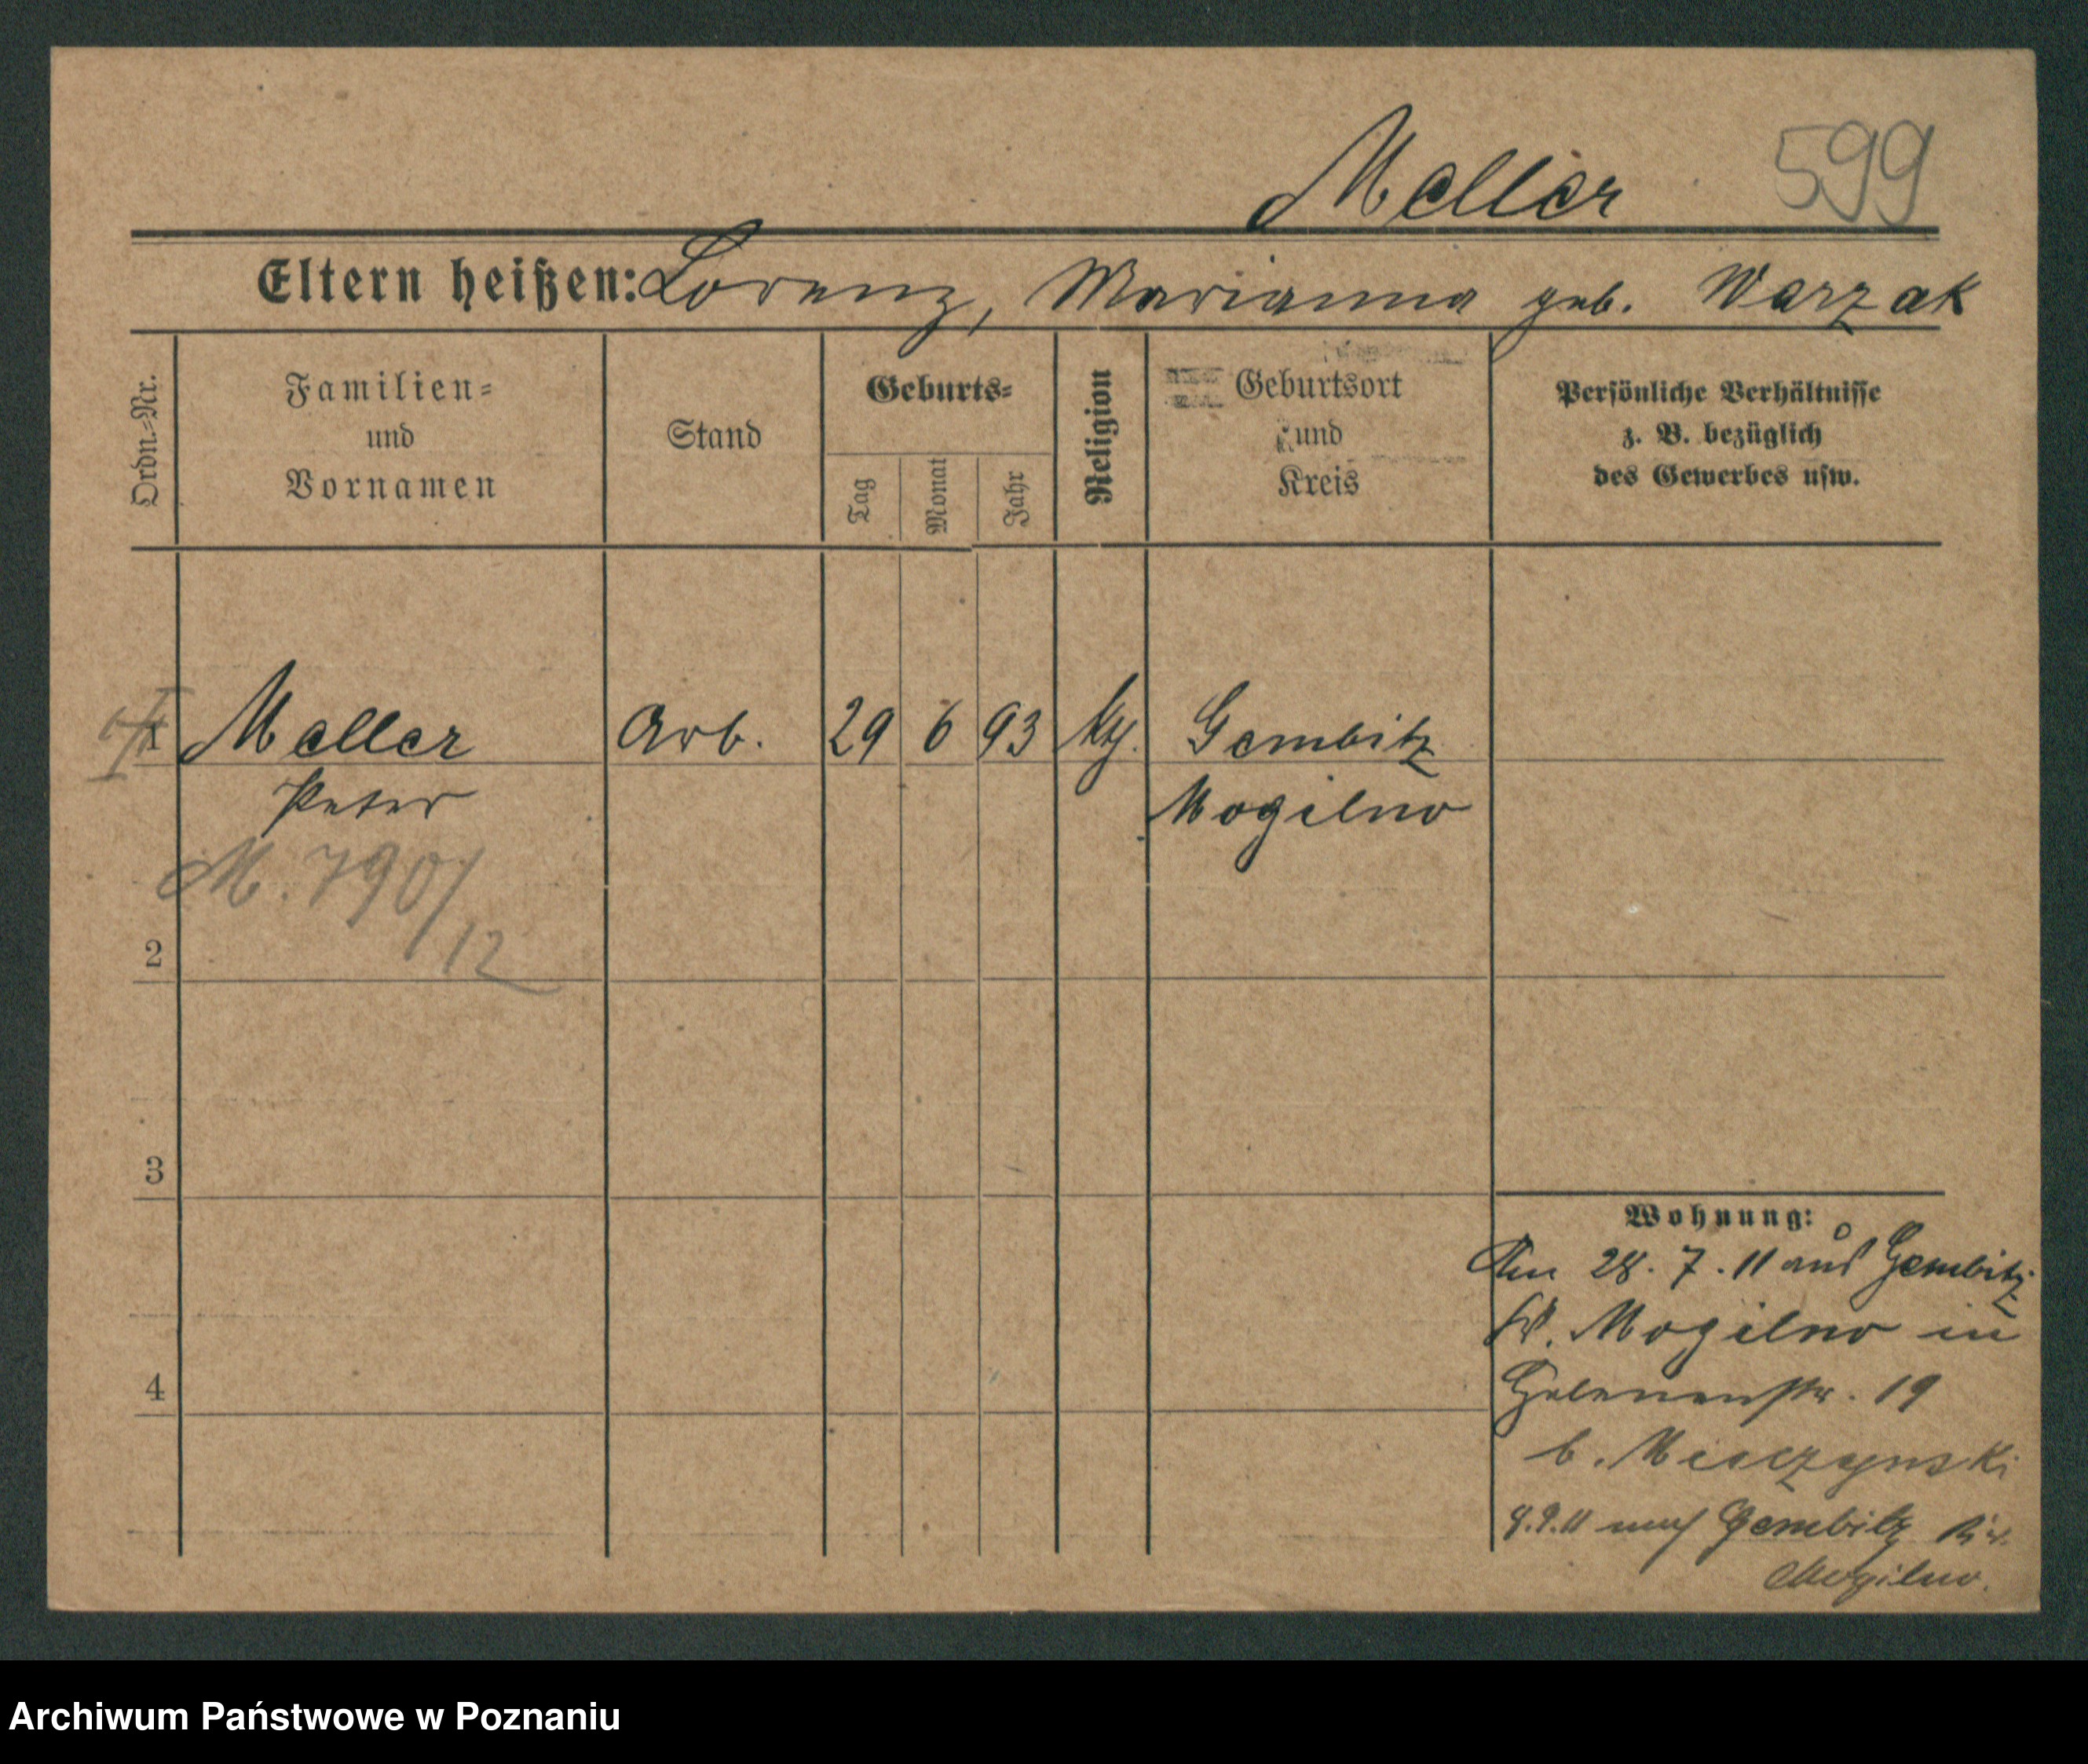 Meller 599
Eltern heißen: Lorenz, Marianna geb. Warzak
Ordn.-Nr.
Familien-
und
Vornamen
Stand
Geburts-
Tag
Monat
Jahr
Religion
Geburtsort
und
Kreis
Persönliche Verhältnisse
z. B. bezüglich
des Gewerbes usw.
1 Meller Arb. 29 6 93 Gembitz
Peter Mogilno
M. 790/12
2
3
4
Wohnung:
Am 28. 7. 11 aus Gembitz
Mogilno in
Helenenstr. 19
b. Mieczynski
9.11 nach Gembitz
Mogilno.
Archiwum Państwowe w Poznaniu